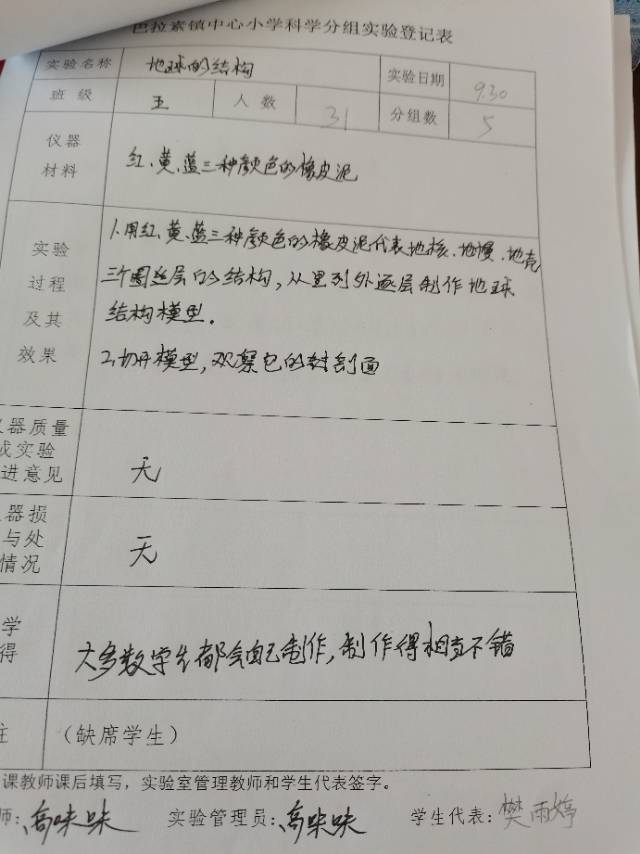 巴拉素镇中心小学科学分组实验登记表
实验名称 地球的结构 实验日期 9.30
班级 五 人数 31 分组数 5
仪器
材料
红、黄、蓝三种颜色的橡皮泥
实验
过程
及其
效果
1.用红、黄、蓝三种颜色的橡皮泥代表地核、地慢、地壳
三个圈层的结构,从里到外逐层制作地球
结构模型.
2.切开模型,观察它的剖面
器质量
或实验
进意见
无
器损
与处
情况
无
学
得
大多数学生都会自己制作,制作得相当不错
注
(缺席学生)
课教师课后填写,实验室管理教师和学生代表签字。
师:高味味 实验管理员:高味味 学生代表:樊雨婷